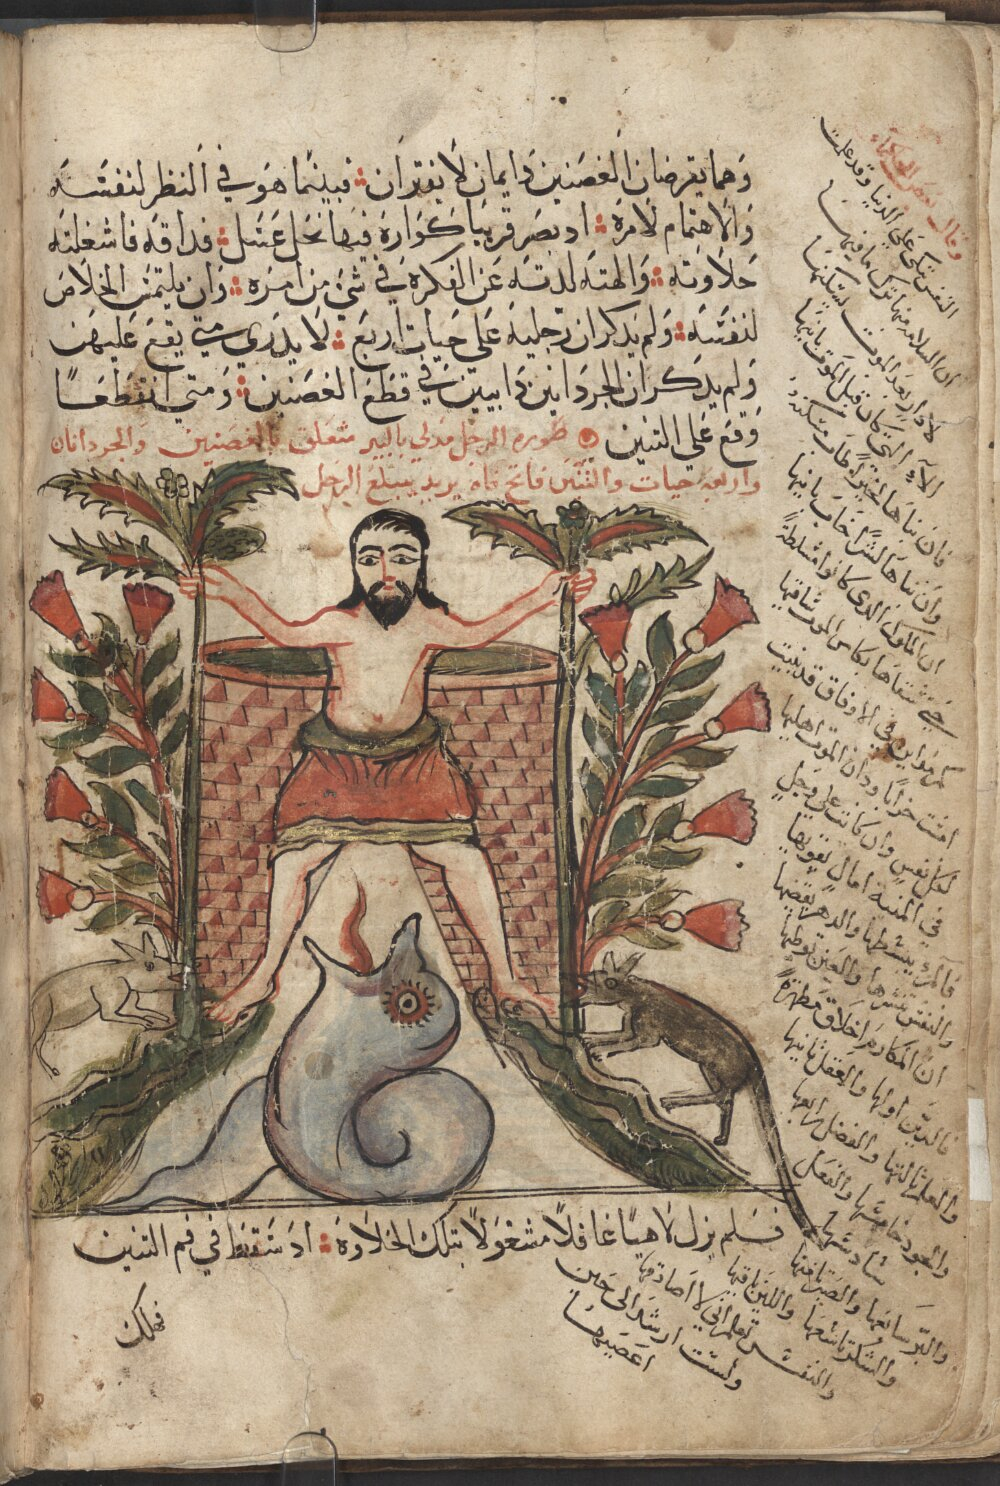 وهما يقرضان الغصنين دايمان لا يفتران ؞ فبينما هو في النظر لنفسه
والاهتمام لامره ؞ اد بصر قريبا كواره فيها نحل عسل ؞ فداقه فاشغلته
حلاوته ؞ والهته لدته عن الفكره في شي من امره ؞ وان يلتمس الخلاص
لنفسه ؞ ولم يدكر ان رجليه على حيات اربع ؞ لا يدري متي يقع عليهن
ولم يدكر ان الجردانين دايبين في قطع الغصنين ؞ ومتي انقطعا
وقع علي التنين صوره الرجل مدلي بالبير متعلق بالغصنين والجردانان
واربعه حيات والتنين فاتح فاه يريد يبتلع الرجل
فلم يزل لاهيًا غافلاً مشغولاً بتلك الحلاوه ؞ اد سقط في فم التنين
فهلك
وقال بعض الحكماء
النفس تبكي على الدنيا وقد علمت
ان السلامه منها ترك ما فيها
لا دار بعد الموت يسكنها
الا التي كان قبل الموت بانيها
فان بناها لخير طاب مسكنه
وان بناها لشر خاب بانيها
ان الملوك الذي كانوا مسلطة
حتى سقاها بكاس الموت ساقيها
كم مداين في الافاق قد بنيت
امست خرابا ودان الموت اهليها
لكل نفس وان كانت على وجل
في المنية امال تقويها
فالمرء يبسطها والدهر يقبضها
والنفس تنشرها والعين تطويها
ان المكارم اخلاق مطهره
فالدين اولها والعقل ثانيها
والعلم ثالثها والفضل رابعها
والجود خامسها والفعل سادسها
والبر سابعها والصبر ثامنها
والشكر تاسعها واللين باقيها
والنفس تعلم اني لا اصادقها
ولست ارشد الى حين اعصيها